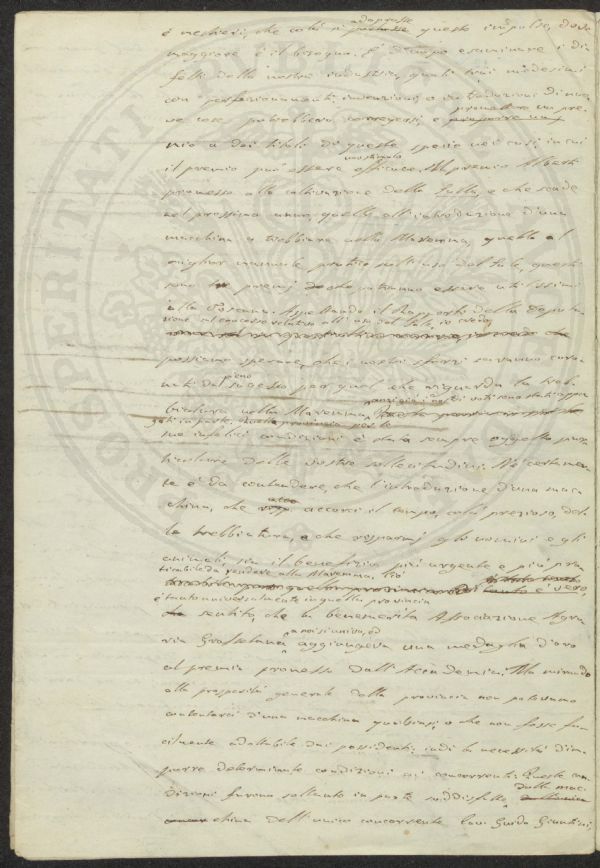 è mestieri, che colà si adoprasse questo impulso, dove
maggiore è il bisogno. È d'uopo esaminare i di-
fetti della nostra industria, quali tra i medesimi
con perfezionamenti, invenzioni, o introduzioni di nuo-
ve cose potrebbero correggersi, e promettere un pre-
mio a dei titoli di questa specie nei casi, in cui
il premio può essere efficace. Il premio Alberti
promesso alla coltivazione della Sulla, e che scade
nel prossimo anno; quello all'introduzione d'una
macchina a trebbiare nella Maremma, quello al
miglior manuale pratico sull'uso del Sale, questi
sono premj che potranno essere utilissimi
alla Toscana. Aspettando il Rapporto della Deputa-
zione al concorso relativo all'uso del Sale, io credo
possiamo sperare, che i nostri sforzi saranno coro-
nati da pieno successo per quel che riguarda la treb-
biatura nella Maremma,
sue infelici condizioni è stata sempre oggetto par-
ticolare delle nostre sollecitudini. Nè certamen-
te è da contendere, che l'introduzione d'una mac-
china, che accorci il tempo, colà prezioso, del-
la trebbiatura, e che risparmj gli uomini e gli
animali, sia il benefizio più urgente e più pra-
ticabile da rendere alla Maremma. Ciò è vero,
è tanto universalmente in quella provincia
sentito, che la benemerita Associazione Agra-
ria Grossetana a noi si univa, ed aggiungeva una medaglia d'oro
al premio promesso dall'Accademia. Ma mirando
alla prosperità generale della provincia non potevamo
contentarci d'una macchina qualsiasi, o che non fosse fa-
cilmente adottabile dai possidenti; indi la necessità d'im-
porre determinate condizioni ai concorrenti. Queste con-
dizioni furono soltanto in parte soddisfatte dalla mac-
china dell'unico concorrente Sav. Guido Giuntini;